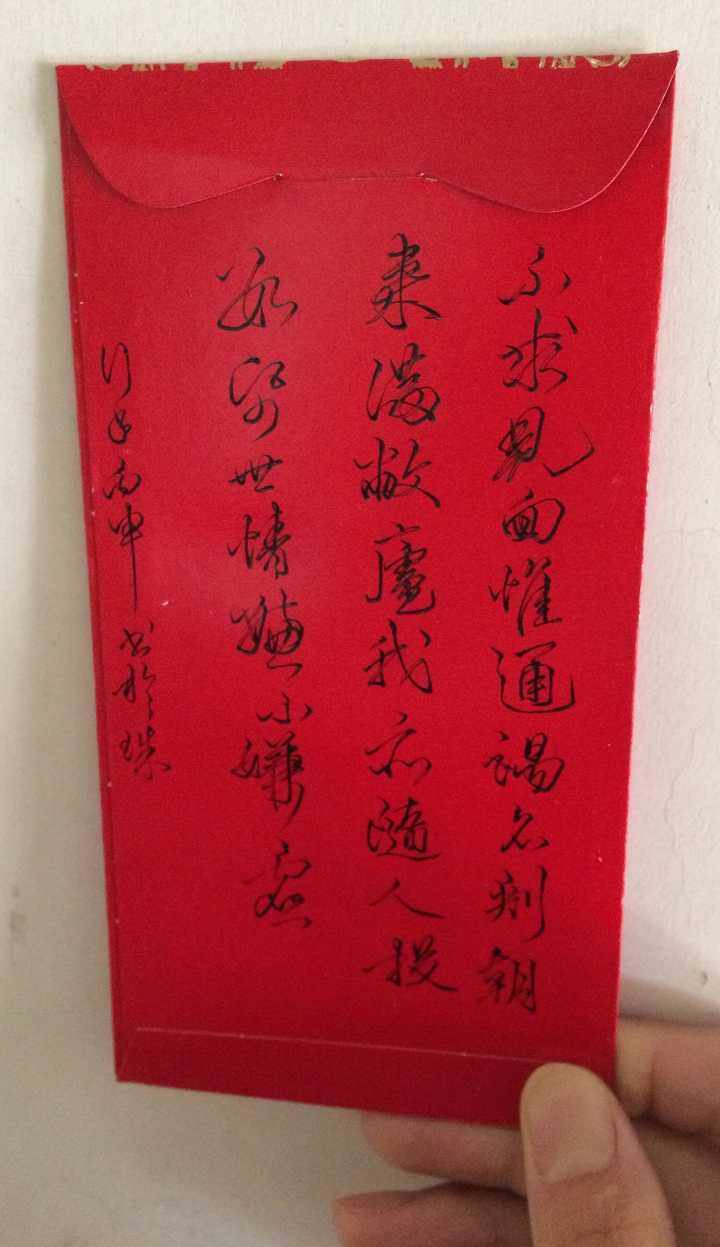 不求見面惟通謁名刺朝
来滿敝廬我亦隨人投
数紙世情嫌不嫌虚
丙申书於珠